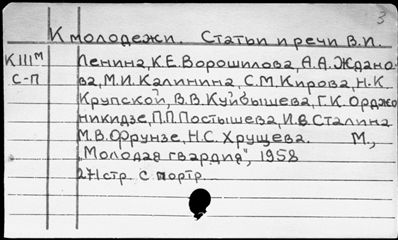 3
К молодежи. Статьи и речи В.И.
КIIIм Ленина, К.Е. Ворошилова, А.А. Ждано-
С-П ва, М.И. Калинина, С.М. Кирова, Н.К.
Крупской, В.В. Куйбышева, Г.К. Орджо
никидзе, П.П. Постышева, И.В. Сталина
М.В. Фрунзе, Н.С. Хрущева. М.,
„Молодая гвардия", 1958
271 стр. с портр.